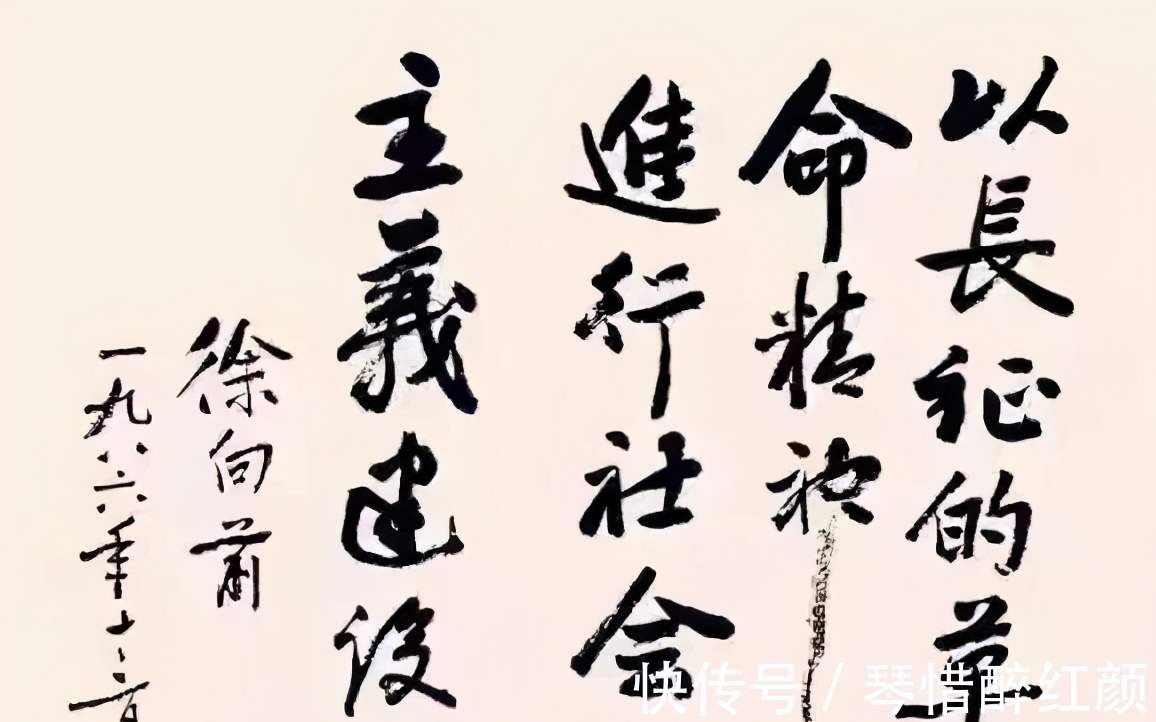 以長征的革
命精神
進行社会
主義建设
徐向前
一九八六年十二月
快传号 / 琴惜醉红颜